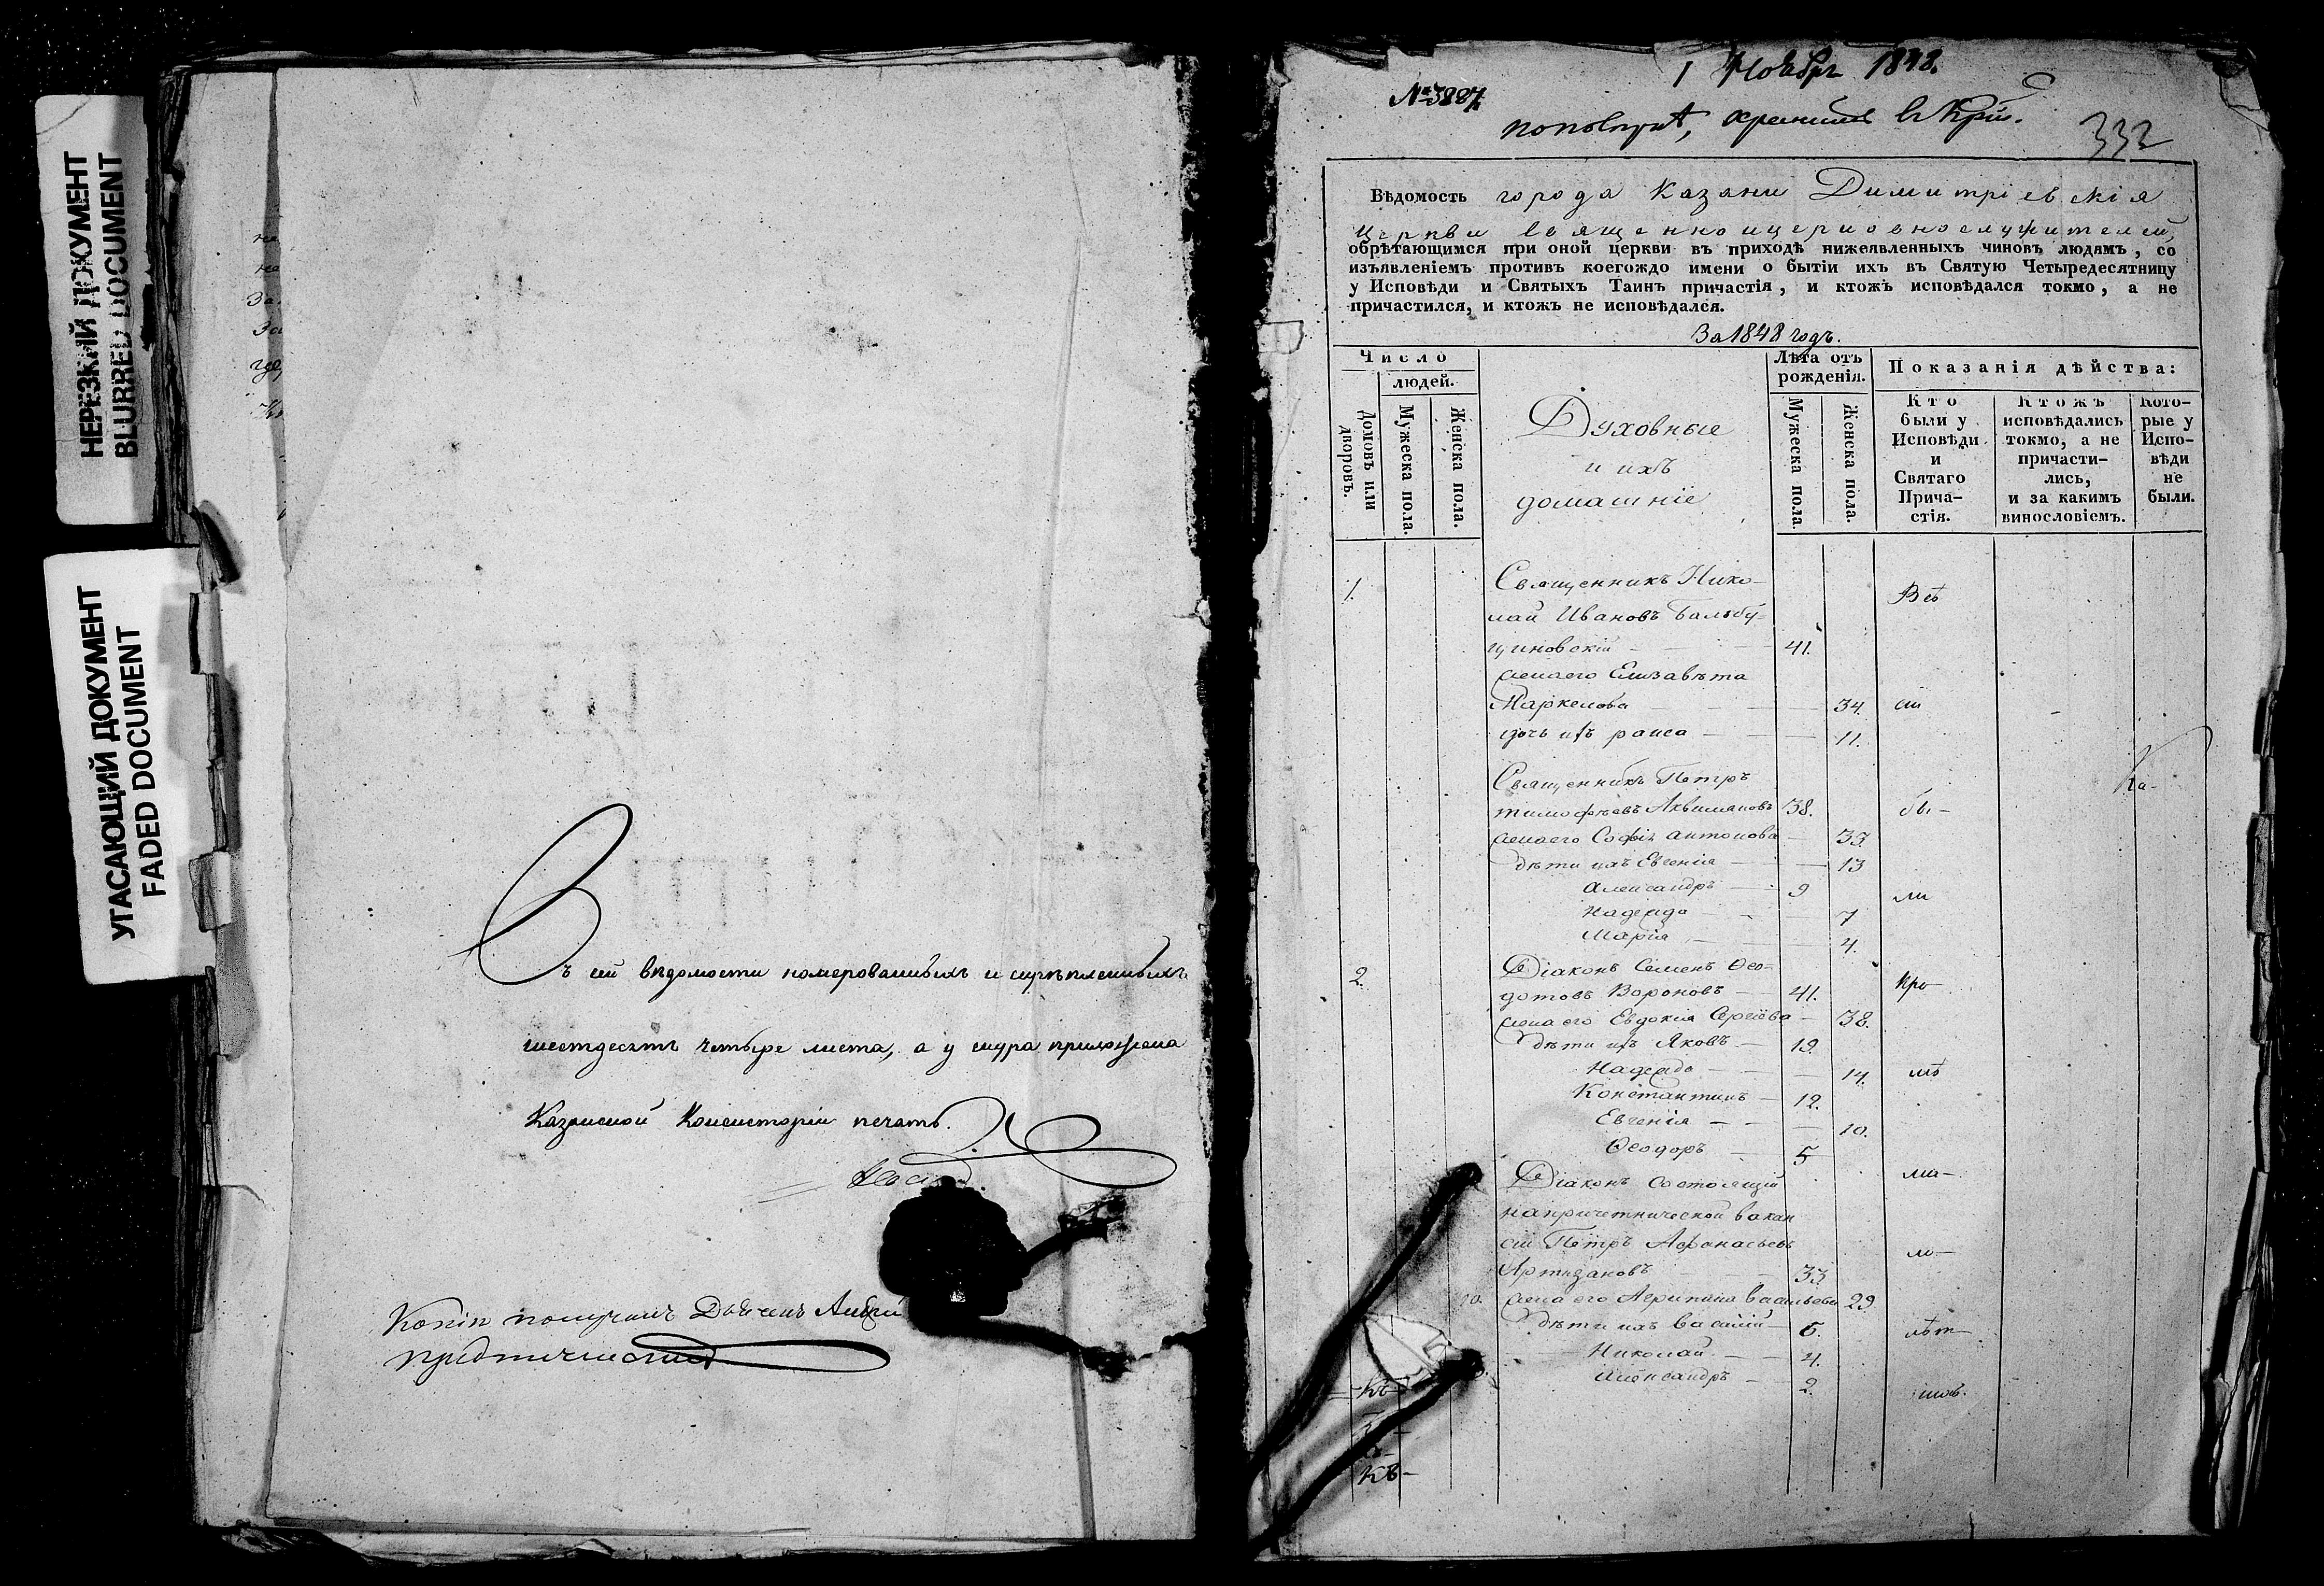 НЕРЕЗКИЙ ДОКУМЕНТ
BLURRED DOCUMENT
УГАСАЮЩИЙ ДОКУМЕНТ
FADED DOCUMENT
Въ сей вѣдомости номерованныхъ и скрѣпленныхъ
шестдесятъ четыре листа, а у шнура приложена
Казанской Консисторіи печать.
Копію получилъ
1 Ноября 1848.
№ 3887.
332
Вѣдомость города Казани Димитріевскія
Церкви священноицерковнослужителей,
обрѣтающимся при оной церкви въ приходѣ нижеявленныхъ чиновъ людямъ, со
изъявленіемъ противъ коегождо имени о бытіи ихъ въ Святую Четыредесятницу
у Исповѣди и Святыхъ Таинъ причастія, и ктожъ исповѣдался токмо, а не
причастился, и ктожъ не исповѣдался.
За 1848 годъ.
Число
людей.
Домовъ или дворовъ.
Мужеска пола.
Женска пола.
Духовные
и ихъ
домашніе
Лѣта отъ
рожденія.
Мужеска пола
Женска пола.
Показанія дѣйства:
Кто
были у
Исповѣди
и
Святаго
Прича-
стія.
Ктожъ
исповѣдались
токмо, а не
причасти-
лись,
и за какимъ
винословіемъ.
Кото-
рые у
Испо-
вѣди
не
были.
1. Священникъ Нико- Всѣ
лай Ивановъ Бальбу-
циновскій 41.
жена его Елизавѣта
Маркелова 34. сіи
дочь ихъ раиса 11.
Священникъ Петръ Ка-
тимофѣевъ Аквиляновъ 38. бы-
жена его Софія антонова 33.
дѣти ихъ Евгенія 13
Александръ 9 ли
Надежда 7
Марія 4.
2. Діаконъ Семенъ Ѳео- пра-
дотовъ Вороновъ 41.
жена его Евдокія Сергіева 38.
дѣти ихъ Яковъ 19.
Надежда 14.
Константинъ 12.
Евгенія 10.
Ѳеодоръ 5
Діаконъ состоящій
на причетнической вакан
сіи Петръ Аѳанасьевъ
Артизановъ 33
жена его Агрипина васильева 29.
дѣти ихъ василій 6.
Николай 4.
Александръ 2.